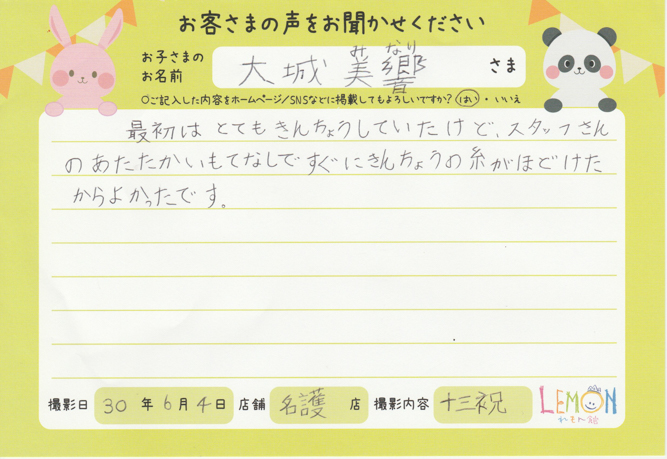 お客さまの声をお聞かせください
お子さまの
お名前
みなり
大城 美響
さま
○ご記入した内容をホームページ/SNSなどに掲載してもよろしいですか? はい・いいえ
最初は とてもきんちょうしていたけど、スタッフさん
のあたたかいもてなしですぐにきんちょうの糸がほどけた
からよかったです。
撮影日 30 年 6 月 4 日 店舗 名護 店 撮影内容 十三祝
LEMON
れもん館